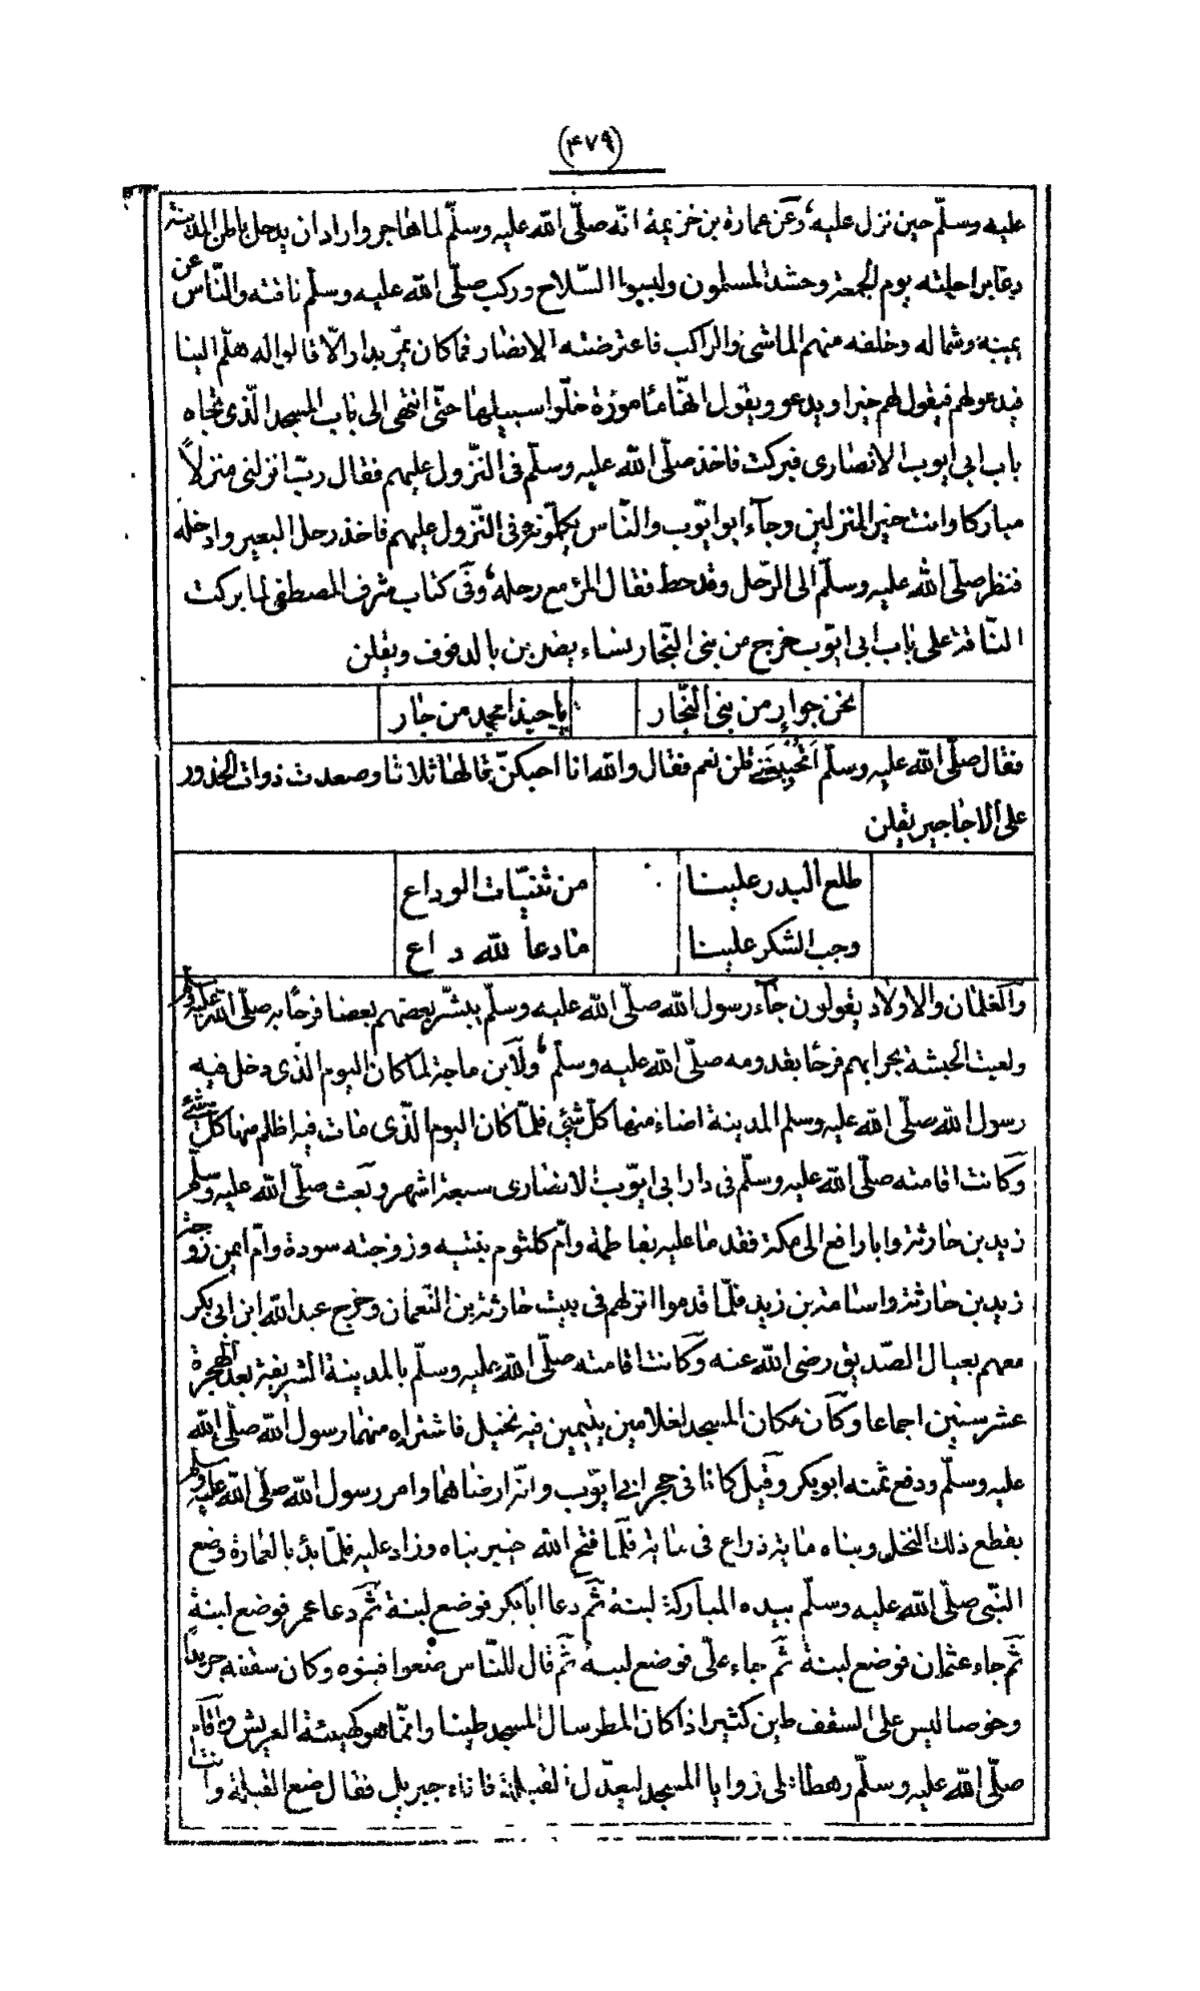 (۴۷۹)
عليه وسلّم حين نزل عليه، وعن عمارة بن خزيمة انّه صلّى الله عليه وسلّم لما هاجر واراد ان يدخل باطن المدينة
دعا براحلته يوم الجمعة وحشد المسلمون ولبسوا السّلاح وركب صلّى الله عليه وسلّم ناقته والنّاس عن
يمينه وشماله وخلفه منهم الماشى والراكب فاعترضته الانصار فما كان يمرّ بدار الّا قالوا له هلّم الينا
فيدعو لهم فيقول لهم خيرا ويدعو ويقول انّها مأمورة خلّوا سبيلها حتّى انتهى الى باب المسجد الّذى تجاه
باب ابى ايوب الانصارى فبركت فاخذ صلّى الله عليه وسلّم فى النّزول عليهم فقال ربّ انزلنى منزلاً
مباركا وانت خير المنزلين وجآء ابو ايّوب والنّاس يكلّمونه فى النّزول عليهم فاخذ رحل البعير وادخله
فنظر صلّى الله عليه وسلّم الى الرّحل وقد حط فقال المرء مع رحله، وفى كتاب شرف المصطفى لما بركت
النّاقة على باب ابى ايّوب خرج من بنى النّجار نساء يضربن بالدفوف ويقلن
نحن جوار من بنى النجّار يا حبذا محمد من جار
فقال صلّى الله عليه وسلّم اتحببننى قلن نعم فقال والله انا احبكنّ قالها ثلاثا وصعدت ذوات الخدور
على الاجاجير يقلن
طلع البدر علينا من ثنيّات الوداع
وجب الشكر علينا ما دعا لله داع
والغلمان والاولاد يقولون جآء رسول الله صلّى الله عليه وسلّم يبشّر بعضهم بعضا فرحًا به صلّى الله عليه وسلم
ولعبت الحبشة بحرابهم فرحًا بقدومه صلّى الله عليه وسلّم، ولابن ماجة لما كان اليوم الّذى دخل فيه
رسول الله صلّى الله عليه وسلم المدينة اضاء منها كلّ شئ فلمّا كان اليوم الّذى مات فيه اظلم منها كلّ شئ
وكانت اقامته صلّى الله عليه وسلّم فى دار ابى ايّوب الانصارى سبعة اشهر وبعث صلّى الله عليه وسلّم
زيد بن حارثة وابا رافع الى مكة فقدما عليه بفاطمة وامّ كلثوم بنتيه وزوجته سودة وامّ ايمن زوجة
زيد بن حارثة واسامة بن زيد فلمّا قدموا انزلهم فى بيت حارثة بن النّعمان وخرج عبد الله ابن ابى بكر
معهم بعيال الصّديق رضى الله عنه وكانت اقامته صلّى الله عليه وسلّم بالمدينة الشريفة بعد الهجرة
عشر سنين اجماعا وكان مكان المسجد لغلامين يتيمين فيه نخيل فاشتراه منهما رسول الله صلّى الله
عليه وسلّم ودفع ثمنه ابو بكر وقيل كانا فى حجر ابى ايّوب وانّه ارضاهما وامر رسول الله صلّى الله عليه وسلم
بقطع ذلك النخل وبناه مأية ذراع فى مأية فلمّا فتح الله خيبر بناه وزاد عليه فلمّا بدئ بالعمارة وضع
النّبى صلّى الله عليه وسلّم بيده المباركة لبنة ثمّ دعا ابابكر فوضع لبنة ثمّ دعا عمر فوضع لبنة
ثمّ جاء عثمان فوضع لبنة ثمّ جاء علىّ فوضع لبنة ثمّ قال للنّاس ضعوا فبنوه وكان سقفه جريدًا
وخوصا ليس على السقف طين كثير اذا كان المطر سال المسجد طينا وانّما هو كهيئة العريش واقام
صلّى الله عليه وسلّم رهطا على زوايا المسجد ليعدّل القبلة فاتاه جبريل فقال ضع القبلة وانت